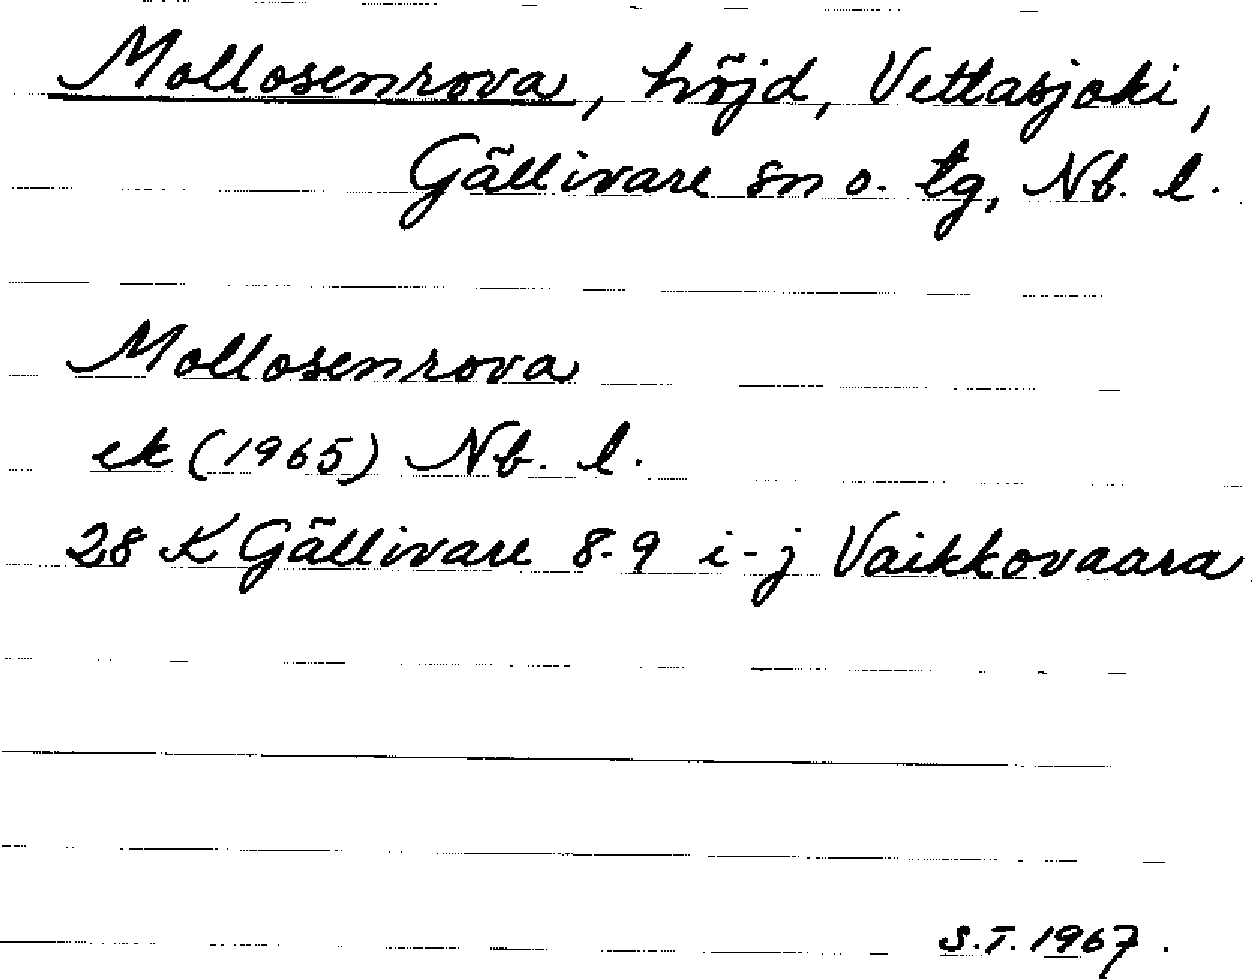 Mollosenrova, höjd, Vettasjoki,
Gällivare sn o. tg, Nb. l.
Mollosenrova
ek (1965) Nb. l.
28 K Gällivare 8-9 i-j Vaikkovaara
S.T. 1967.